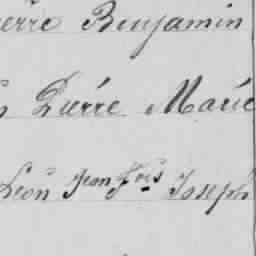 ierre Benjamin
Pierre Marie
Léon Jean Fois Joseph